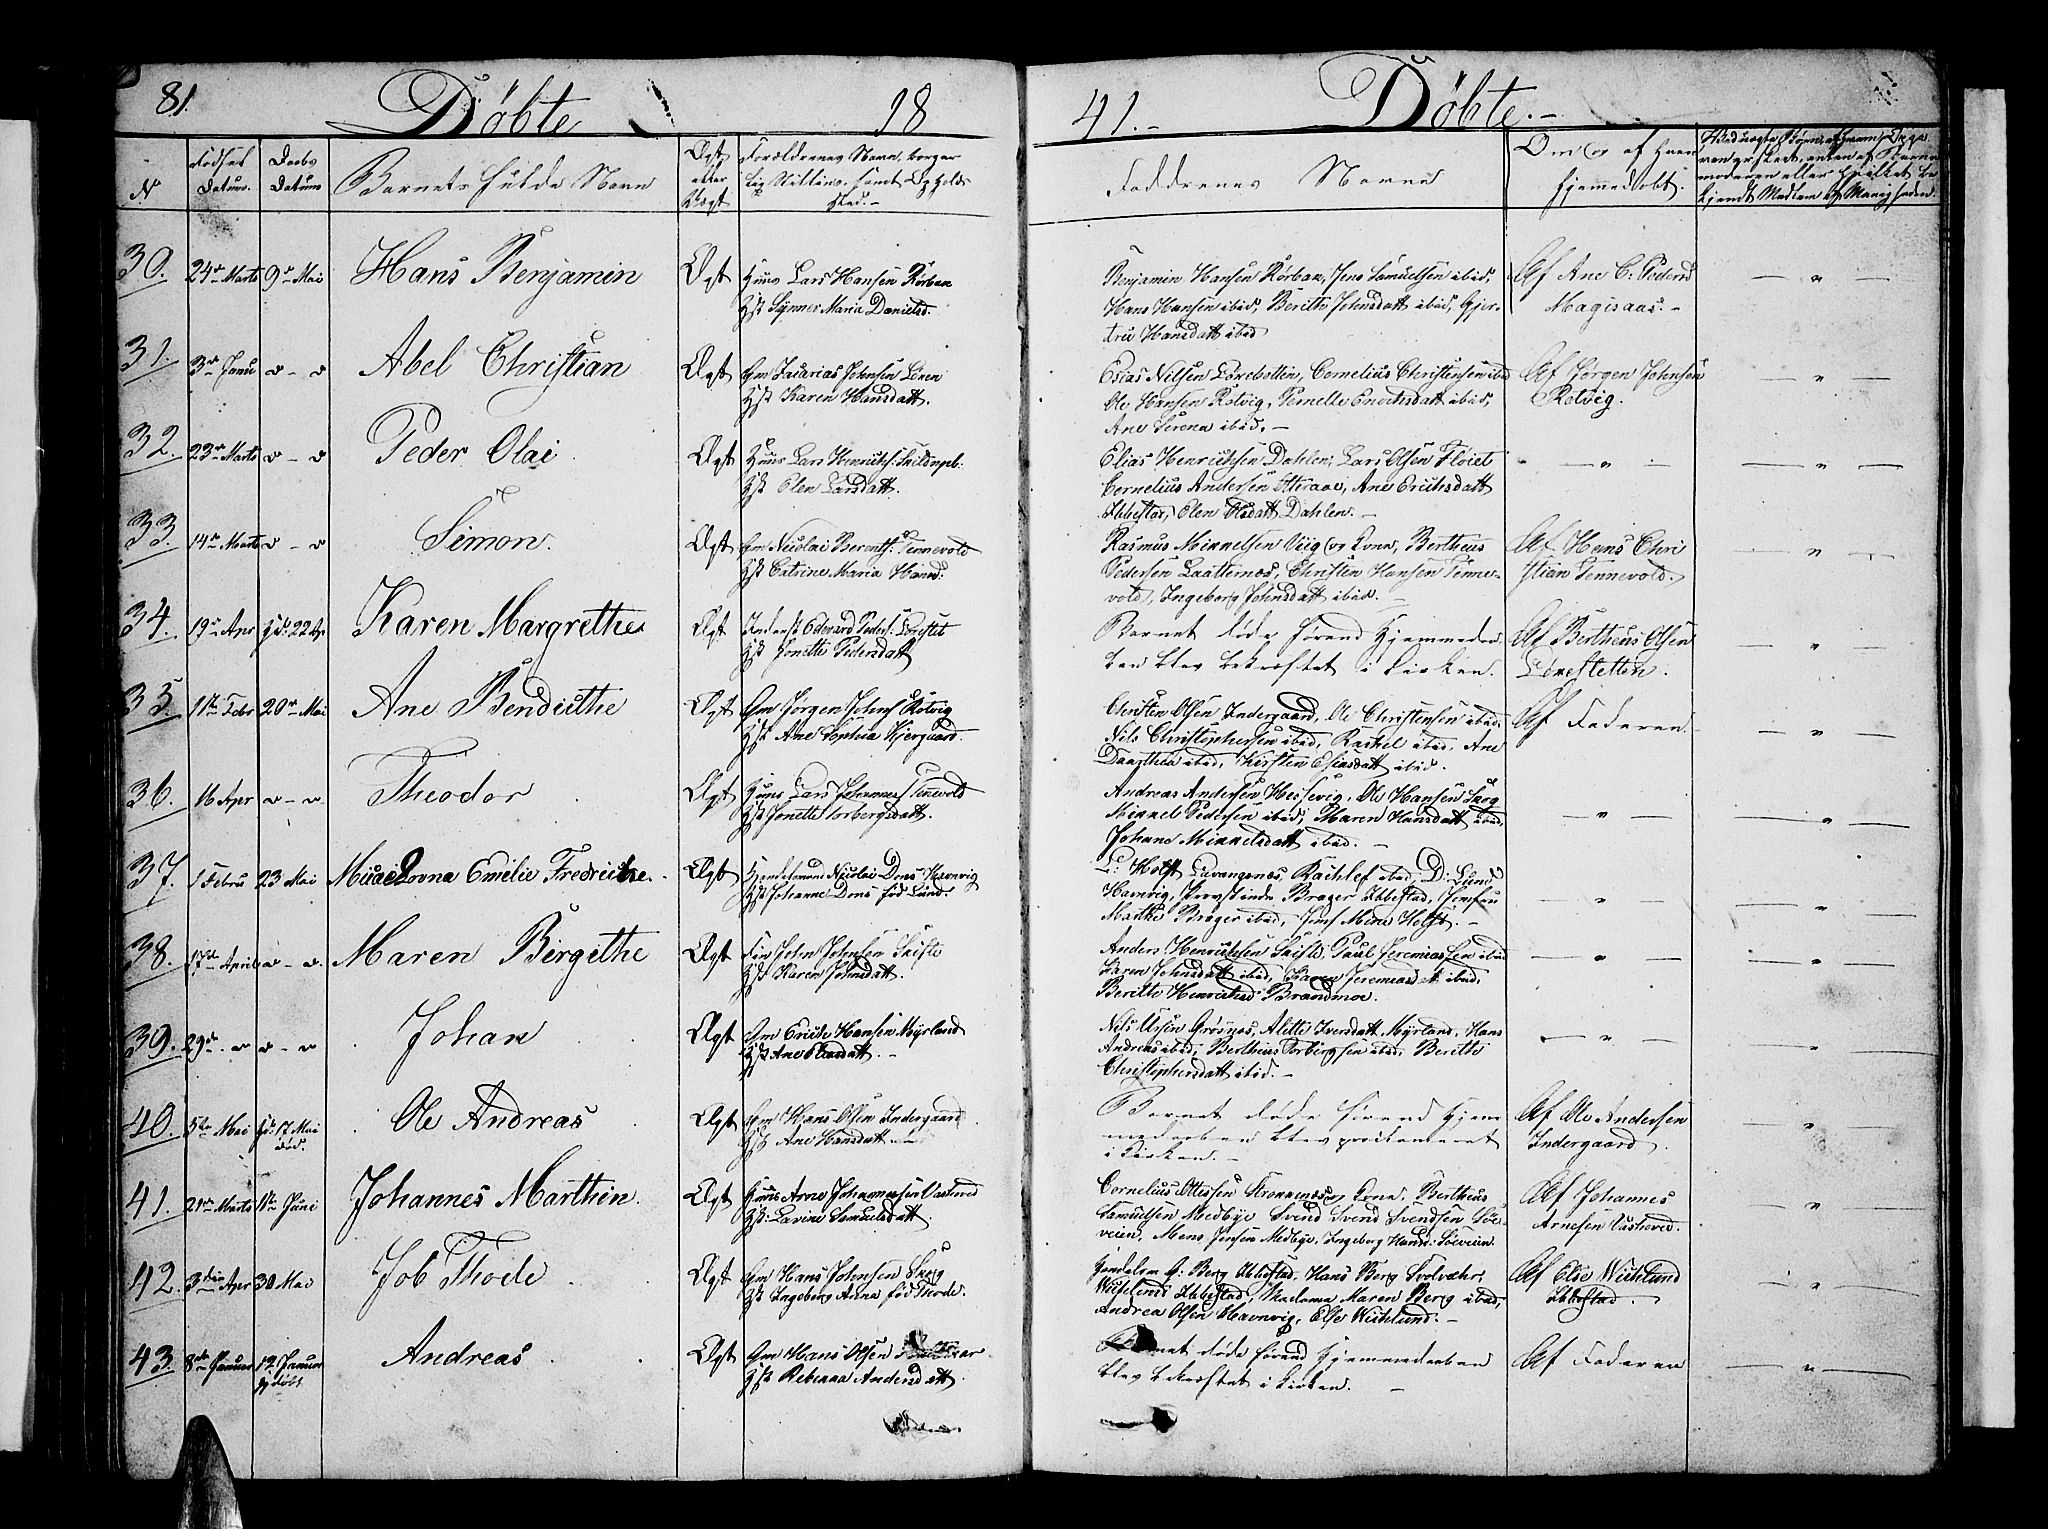 81. Döbte 18 41.- Döbte.-
N Fødsel Datum. Daabs Datum Barnets fulde Navn Ægt eller Uægt Forældrenes Navn, borger
lig Stilling, samt Opholds
sted.-
Faddernes Navne
Om og af hvem
hjemmedøbt.
30. 24de Marts 9de Mai Hans Benjamin Ægt Huus Lars Hansen Rørbak
Hst Synner Maria Danielsd.
Benjamin Hansen Rørbak, Jens Samuelsen ibid,
Hans Hansen ibid, Berith Johnsdatt ibid, Gjer-
trü Hansdatt ibid
Af Ane C: Pedersd
Magisaas.-
— " —
31. 3de Janu v - v Abel Christian Ægt Gm Zacarias Johnsen
Hst Karen Hansdatt.
Esias Nilsen, Cornelius Christensen ibid
Ole Hansen Rotvig, Pernelle Enochsdatt ibid,
Ane Serena ibid.-
Af Jørgen Johnsen
Rotvig.
— " —
32. 23de Marts v - v Peder Olai Ægt Huus Lars Henrichs:
Hst Elen Larsdatt.
Elias Henrichsen Dahlen, Lars Olsen Fløiet
Cornelius Andersen Otteraae, Ane Erichsdatt
Ibbestad, Elen Olsdatt Dahlen.-
— " —
— " —
33. 14de Marts v - v Simon. Ægt Gm Nicolai Berents: Tennevold
Hst Catrine Maria Hansd:
Rasmus Mikkelsen Viig og Kone, Bertheus
Pedersen Laatternes, Christen Hansen Tenne-
vold, Ingeborg Johnsdatt ibid.-
Af Hans Chri
stian Tennevold.
— " —
34. 19de Apr Hd: 22 Ap Karen Margrethe Ægt Inderst Edevard Peders:
Hst Jonette Pedersdatt
Barnet døde førend Hjemmedaa-
ben blev bekræftet i Kirken.
Af Bertheus Olsen
— " —
35. 11te Febr 20de Mai Ane Bendicthe Ægt Gm Jørgen Johns: Rotvig
Hst Ane Sophia Kjergaard.
Christen Olsen Indergaard, Ole Christensen ibid,
Nils Christophersen ibid, Rachel ibid, Ane
Daarthea ibid, Kirsten Esiasdatt ibid.
Af Faderen.
— " —
36. 16 Apr v - v Theodor Ægt Huus Lars Johannes: Tennevold
Hst Jonette Torbergsdatt.
Andreas Andersen, Ole Hansen Skog
Mikkel Pedersen ibid, Maren Hansdatt ibid,
Johane Mikkelsdatt ibid.-
— " —
— " —
37. 1 Febru 23 Mai Micaelovna Emilie Fredricke. Ægt Handelsmand Nicolai Dons Havnvig
Hst Johanne Dons fød Lund.
L: Holst, Rachlef ibid, D: Lund
Havnvig, Provstinde Brager Ibbestad, Jomfru
Marthe Brager ibid, Jomf Mina Holst.-
— " —
— " —
38. 17de April v - v. Maren Birgithe Ægt Fin John Johnsen
Hst Karen Johnsdatt
Anders Henrichsen, Paul Jeremiassen ibid
Karen Johnsdatt ibid, Karen Jeremiasdatt ibid,
Berithe Henrichsd: Brandmoe.
— " —
— " —
39. 29de. v v - v Johan Ægt Gm Erich Hansen Myrland
Hst Ane Eliasdatt.-
Nils Olsen Grøsnes, Alette Iversdatt Myrland, Hans
Andreas ibid, Bertheus Torbergsen ibid, Berith
Christophersdatt ibid.-
— " —
— " —
40. 5te Mai Hd: 17 Mai
død. Ole Andreas Ægt Gm Hans Olsen Indergaard
Hst Ane Hansdatt.-
Barnet døde førend Hjem
medaaben blev proclameret
i Kirken.-
Af Ole Andersen
Indergaard.
— " —
41. 21de Marts 1te Juni Johannes Marthin Ægt Huus Arne Johannessen
Hst: Lavine Samuelsdatt.
Cornelius Ottersen og Kone. Bertheus
Samuelsen Medbye, Svend Svendsen Søe-
veien, Mons Jensen Medbye, Ingeborg Hansd: Søeveien.
Af Johannes
Arnesen.
— " —
42. 3die Apr 30 Mai Job Thode Ægt Gm Hans Johnsen Skog
Hst Ingeborg Anna fød Thode.
G: Berg Ibbestad, Hans Berg Svolvæhr,
Wichlund Ibbestad, Madame Maren Berg ibid,
Andrea Olsen Havnvig, Else Wichlund.-
Af Else Wichlund
Ibbestad.
— " —
43. 8de Januar 12 Januar
Hjdøbt Andreas Ægt Gm Hans Olsen
Hst Rebekka Andersdatt
Barnet døde førend Hjemmedaaben
blev bekræftet i Kirken.-
Af Faderen
— " —